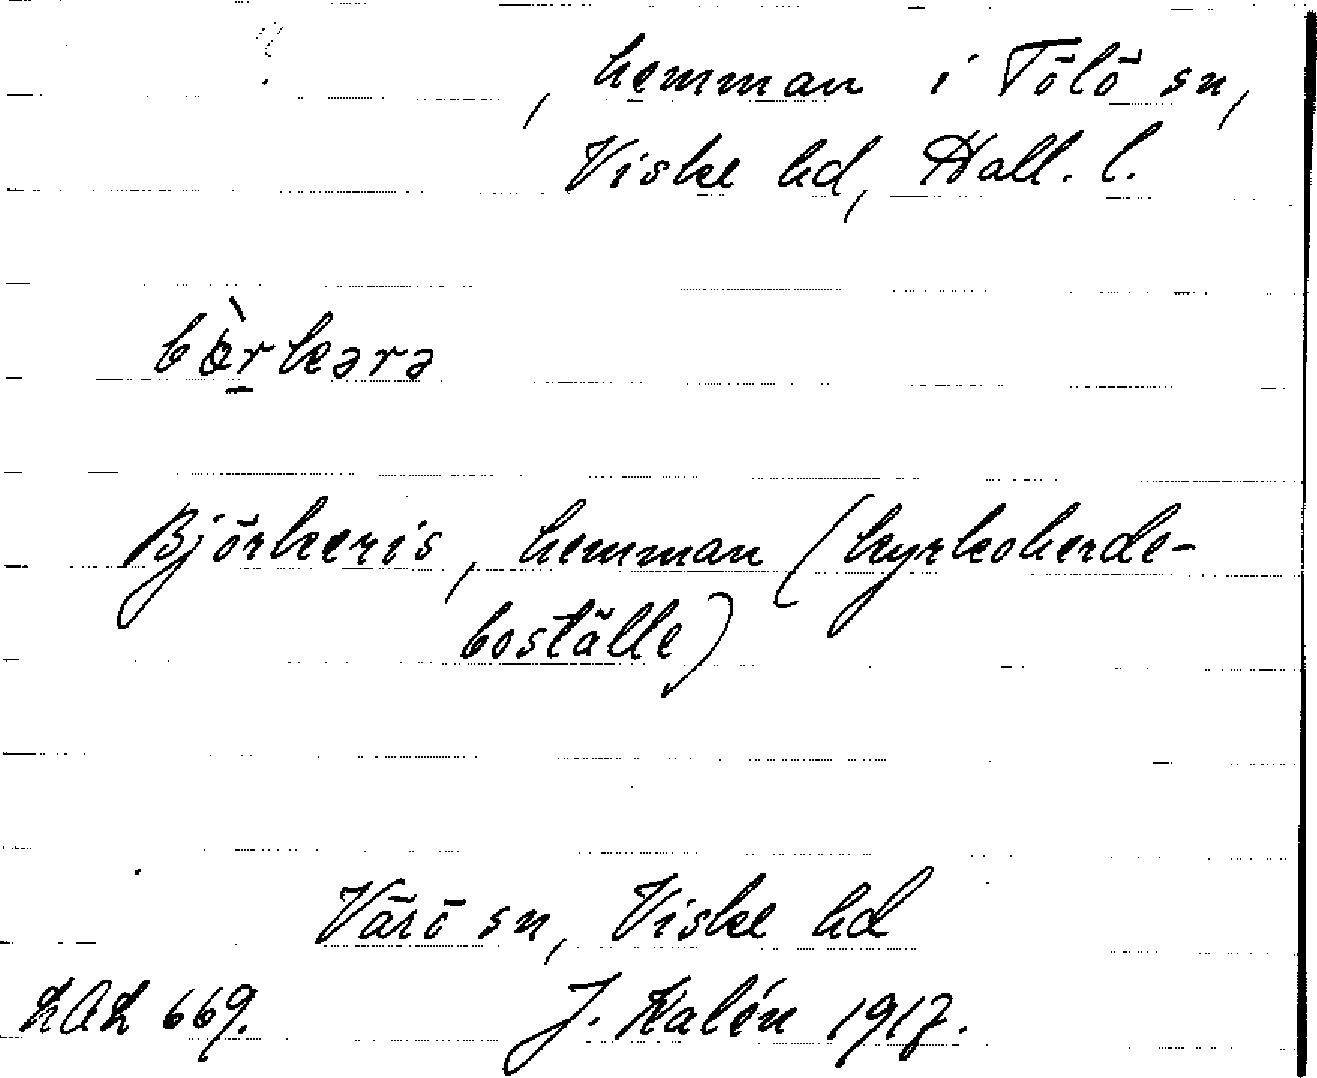 ?
, hemman i Tölö sn,
Viske hd, Hall. l.
bö̀rkərə
Björkeris, hemman (kyrkoherde-
boställe)
Värö sn, Viske hd
LAL 669. J. Kalén 1917.